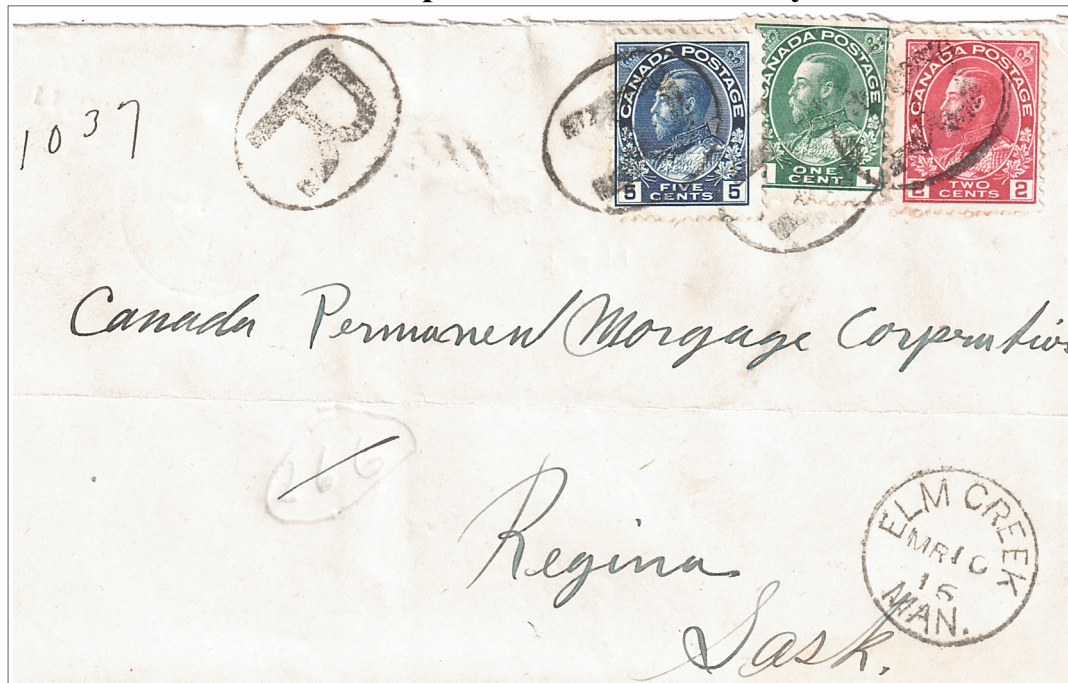 1037
R
CANADA POSTAGE
5 FIVE CENTS 5
CANADA POSTAGE
1 ONE CENT 1
CANADA POSTAGE
2 TWO CENTS 2
Canada Permanen Morgage Corpratio
266
Regina
Sask.
ELM CREEK
MR 10
15
MAN.